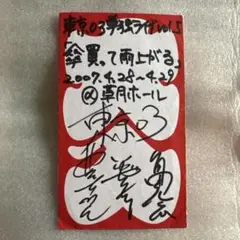 東京03単独ライブvol.5
傘買って雨上がる
2007.4.28~4.29
@草月ホール
東京03